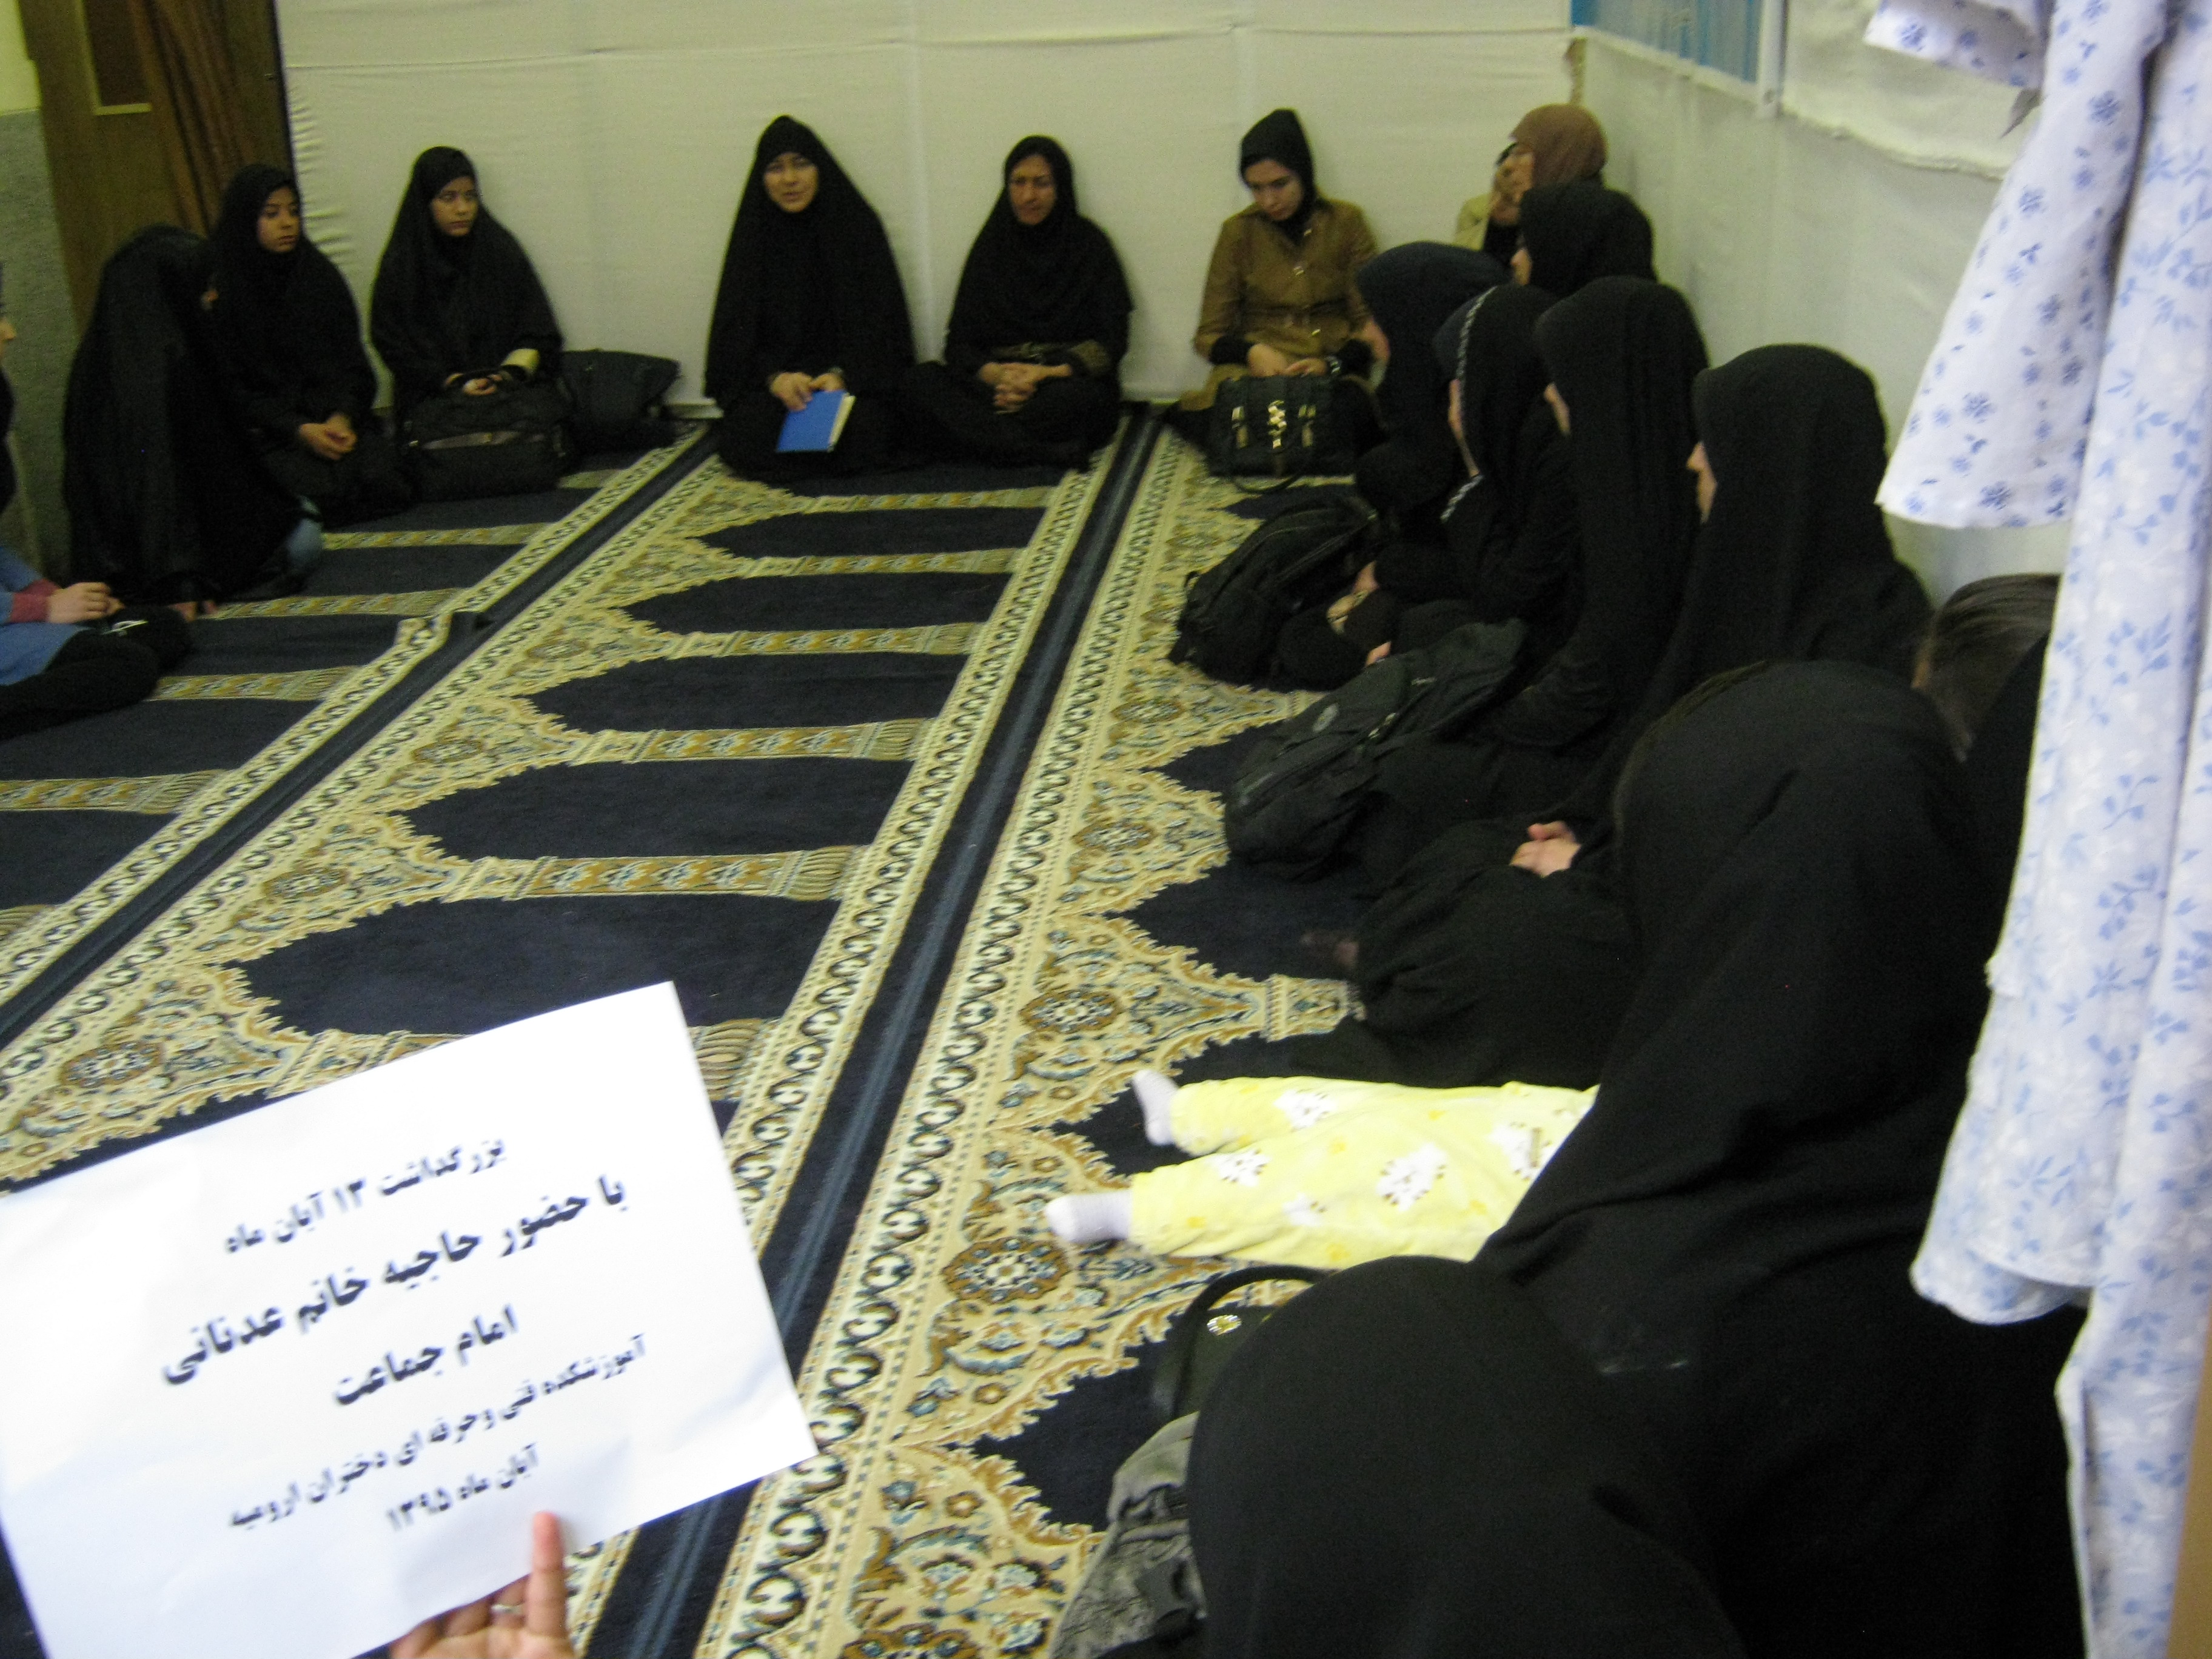 بزرگداشت ۱۳ آبان ماه
با حضور حاجیه خانم عدنانی
امام جماعت
آموزشکده فنی وحرفه ای دختران ارومیه
آبان ماه ۱۳۹۵